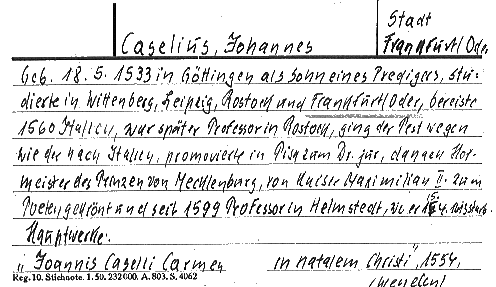 Stadt
Caselius, Johannes
Frankfurt/Oder
Geb. 18.5.1533 in Göttingen als Sohn eines Predigers, stu-
dierte in Wittenberg, Leipzig, Rostock und Frankfurt/Oder, bereiste
1560 Italien, war später Professor in Rostock, ging der Pest wegen
wieder nach Italien, promovierte in Pisa zum Dr. jur., danach Hof-
meister des Prinzen von Mecklenburg, von Kaiser Maximilian II. zum
Poeten gekrönt und seit 1599 Professor in Helmstedt, wo er
Hauptwerke:
"Joannis Caselli Carmen in natalem Christi", 1554,
Reg. 10. Stichnote. 1. 59. 232000. A. 803. S. 4062